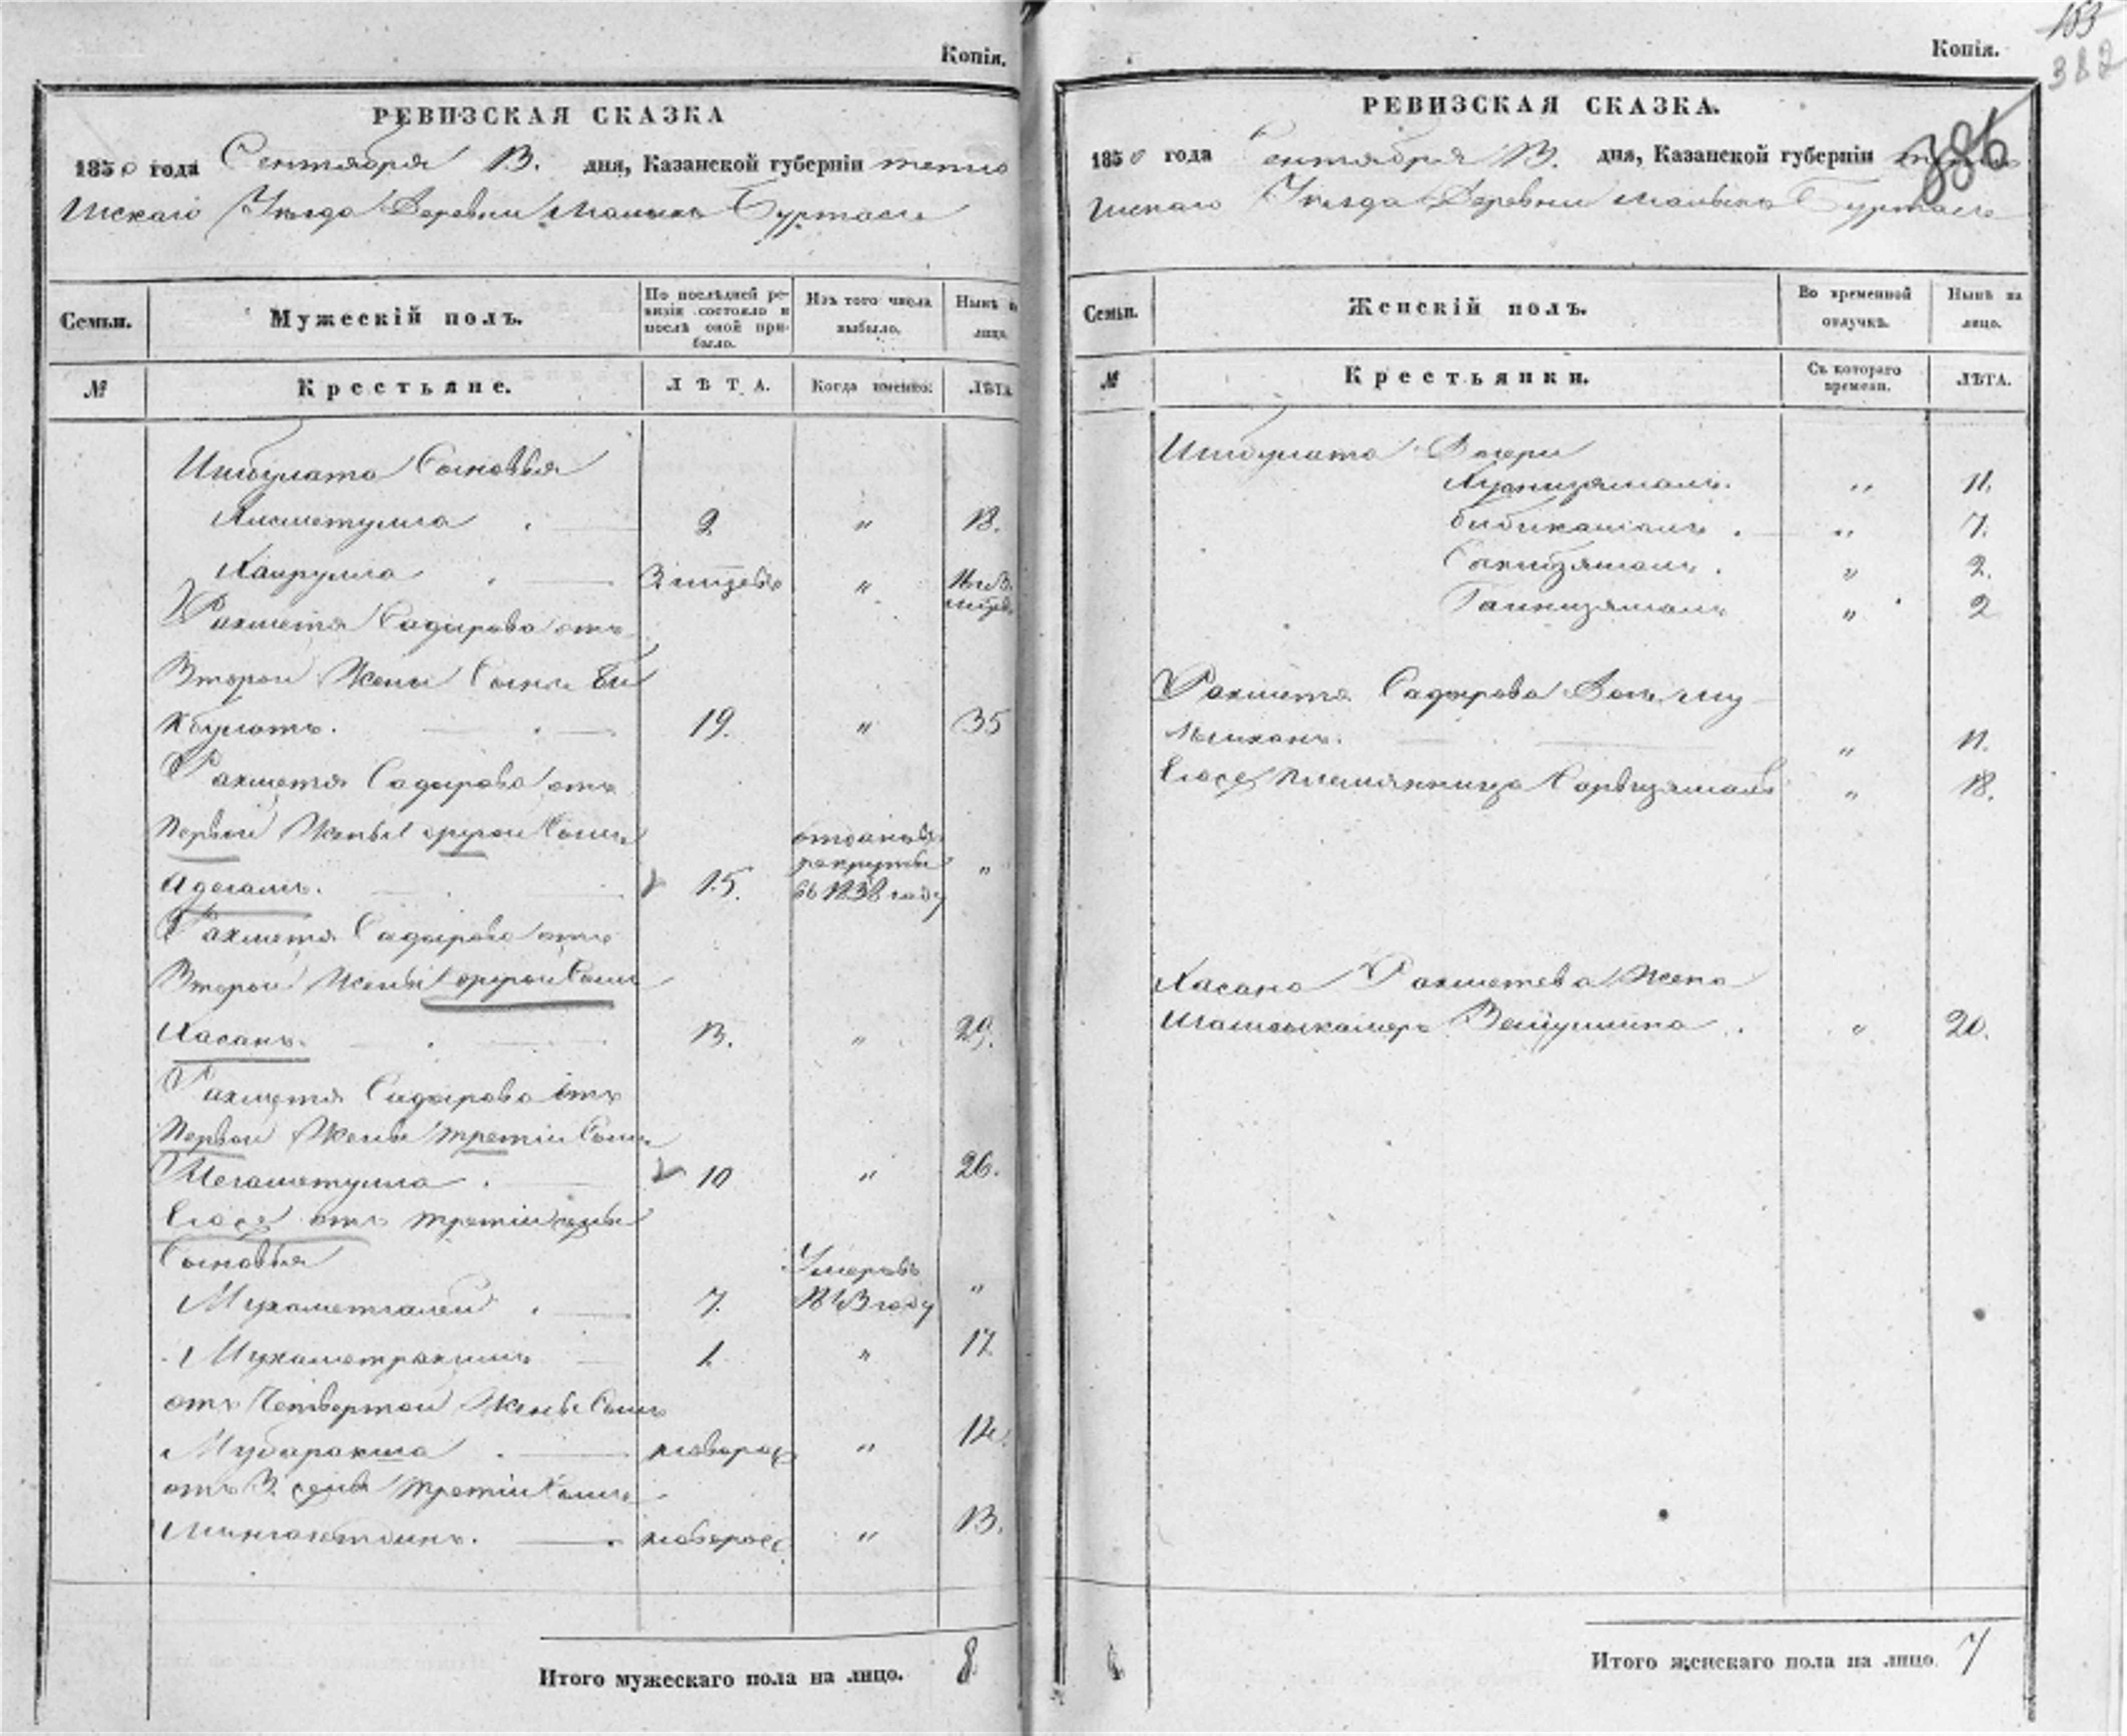 Копія.
РЕВИЗСКАЯ СКАЗКА
1850 года Сентября 13. дня, Казанской губерніи тетю
шскаго Уѣзда Деревни Малыхъ Буртасъ
Семьи.
Мужескій полъ.
По послѣдней ре-
визіи состояло и
послѣ оной при-
было.
Изъ того числа
выбыло.
Нынѣ н
лицо.
№
Крестьяне.
ЛѢТА.
Когда именно:
ЛѢТА
Ишбулата Сыновья
2 " 18.
Хаирулла
Рахметя Садырова отъ
Второй Жены Сынъ Би
кбулатъ. 19. " 35
Рахметя Садырова отъ
Первой Жены другой Сынъ
отданъ въ
рекруты
въ 1838 году
Адегамъ. 15. "
Рахметя Садырова отъ
Второй Жены другой Сынъ
Хасанъ. 13. " 29.
Рахметя Садырова отъ
Первой Жены третій Сынъ
10 " 26.
Ево же отъ третій жены
Сыновья
Умеръ въ
Мухаметгалей 7. году "
Мухаметрахимъ 1. " 17
отъ Четвертой Жены Сынъ
Мубаракша новорож "
отъ 3. жены третій Сынъ
новорож " 13.
Итого мужескаго пола на лицо. 8
Копія.
153
382
386
РЕВИЗСКАЯ СКАЗКА.
1850 года Сентября 13. дня, Казанской губерніи тетю
шскаго Уѣзда Деревни Малыхъ Буртасъ
Семьи.
Женскій полъ.
Во временной
отлучкѣ.
Нынѣ на
лицо.
№
Крестьянки.
Съ котораго
времени.
ЛѢТА.
Ишбулата Дочери
" 11.
Бибикамалъ. " 7.
" 2.
" 2
Рахметя Садырова Дочь Гу
" 11.
Ево же племянница " 18.
Хасана Рахметева Жена
" 20.
Итого женскаго пола на лицо 7